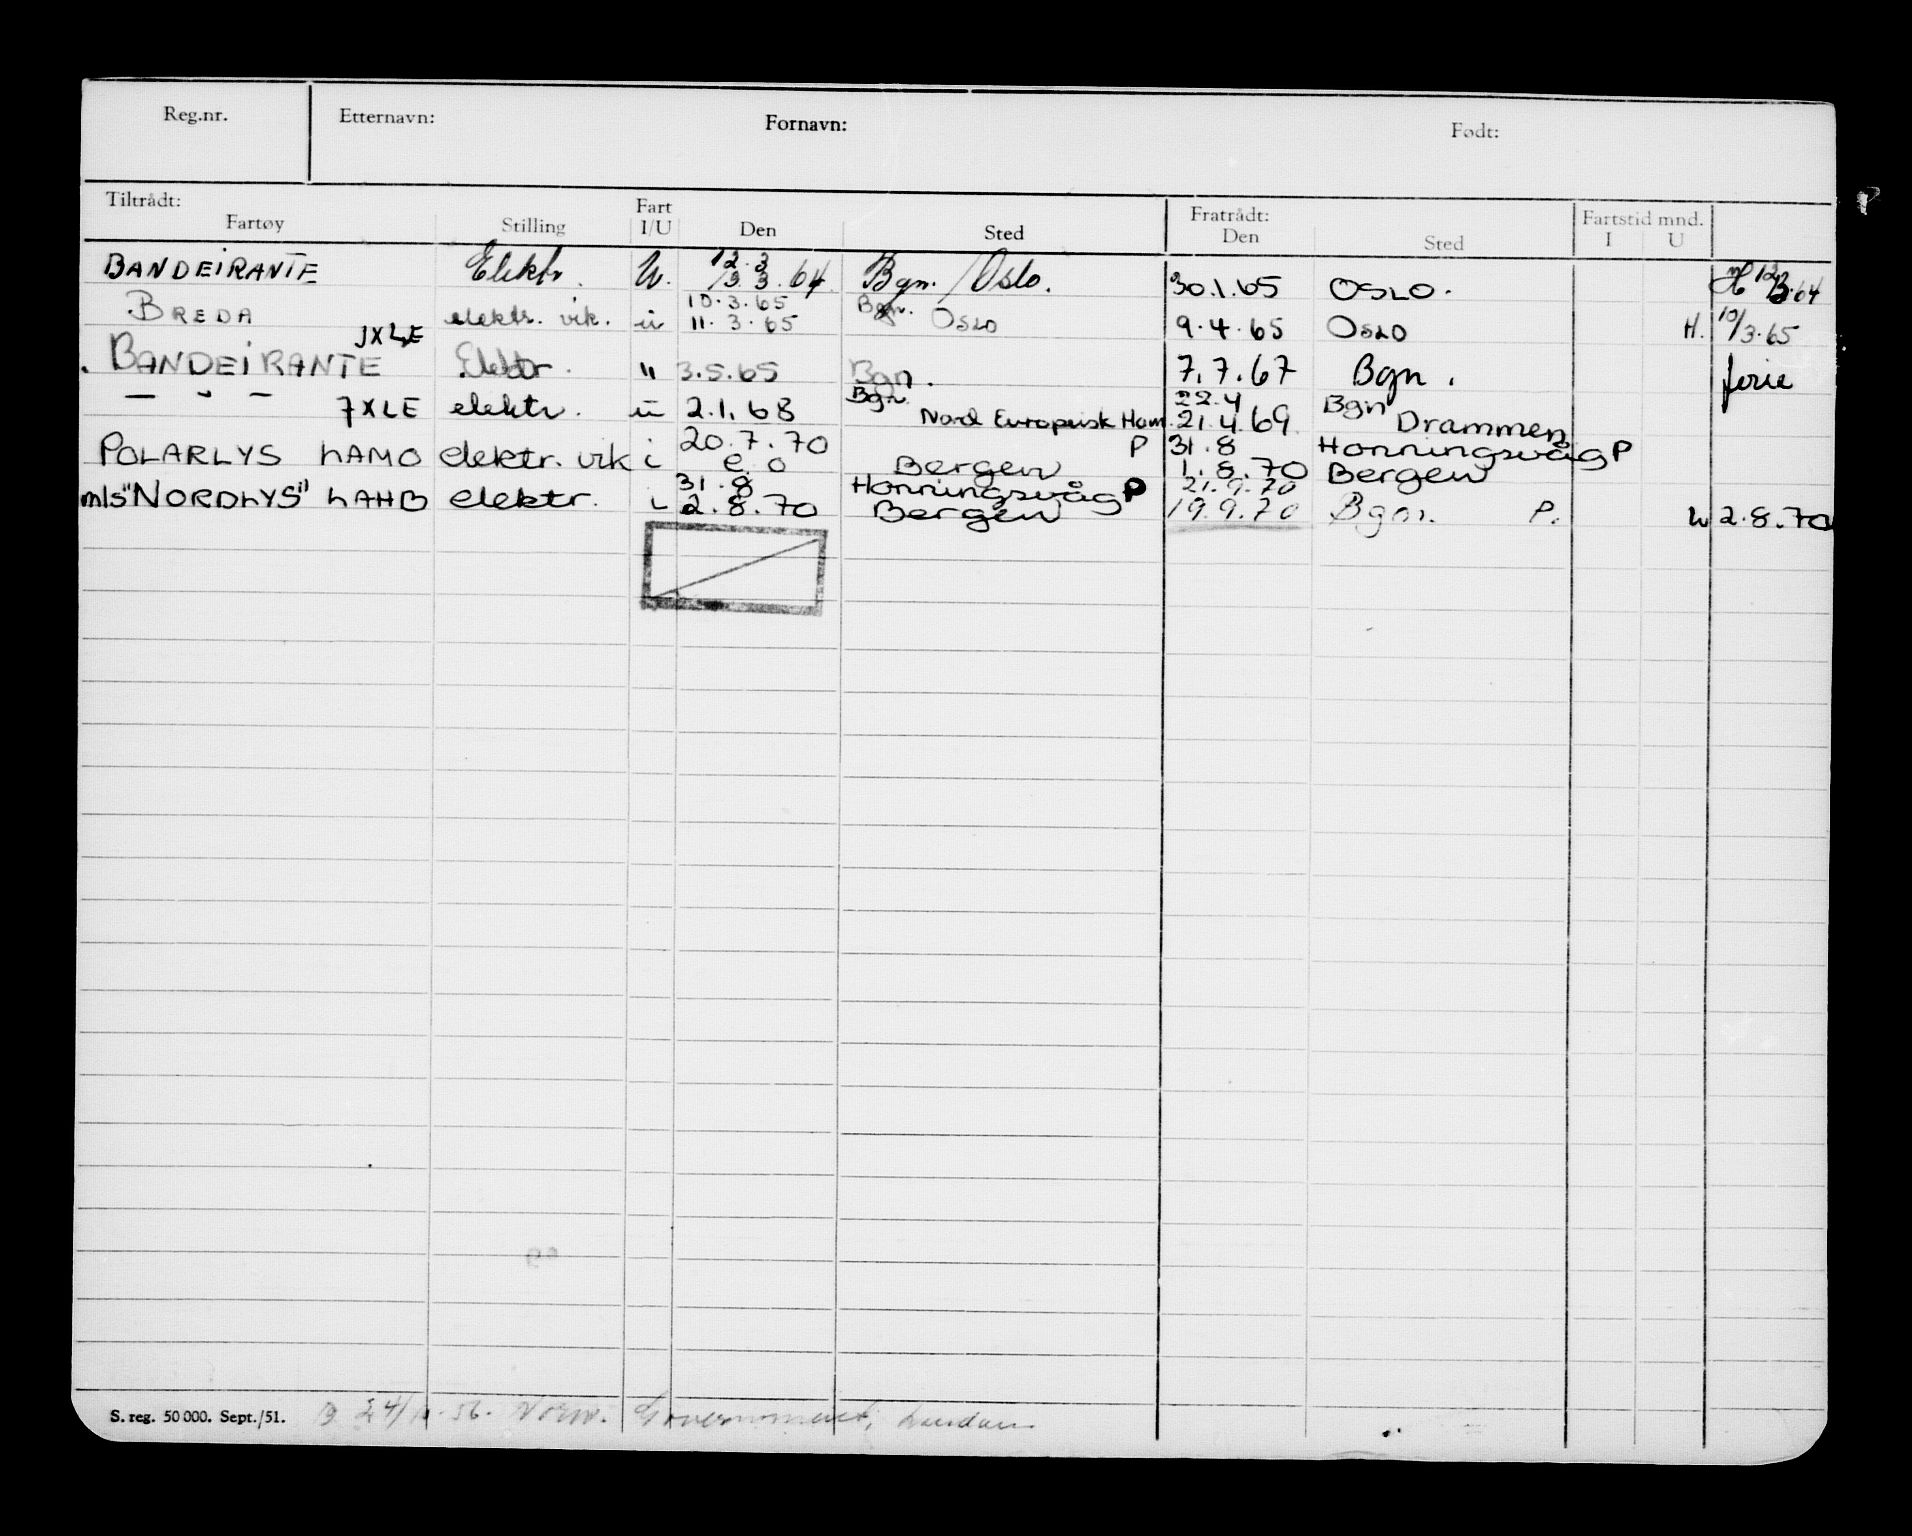 Reg.nr. Etternavn: Fornavn: Født:
Tiltrådt: Fart Fratrådt: Fartstid mnd.
Fartøy Stilling I/U Den Sted Den Sted I U
12.3
BANDEIRANTE Elektr. U. 13.3.64 Bgn./Oslo. 30.1.65 OSLO. 12/3.64
10.3.65 Bgn.
BREDA elektr. vik. u 11.3.65 OSLO 9.4.65 OSLO H. 10/3.65
JXLE
BANDEIRANTE Elektr. " 3.5.65 Bgn. 7.7.67 Bgn. ferie
Bgn. 22.4 Bgn
— " — JXLE elektr. u 2.1.68 Nord Europeisk Ham. 21.4.69 Drammen
20.7.70 P 31.8 Honningsvåg P
POLARLYS LAMO elektr. vik i e.o Bergen 1.8.70 Bergen
31.8 Honningsvåg P 21.9.70
m/s "NORDLYS" LAHB elektr. i 2.8.70 Bergen 19.9.70 Bgn. P. u 2.8.70
S. reg. 50 000. Sept./51. 56. Norw. Government, London